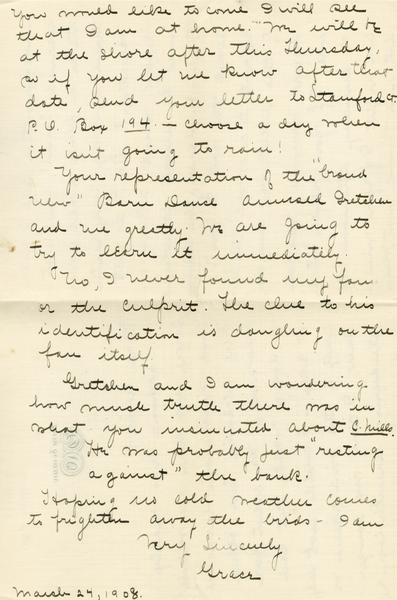 You would like to come I will see
that I am at home." We will be
at the shore after this Thursday,
so if you let me know after that
date, send your letter to Stamford Ct.
P.O. Box 194. — choose a day when
it isn't going to rain!
Your representation of the "brand
new" Barn Dance amused Gretchen
and me greatly. We are going to
try to learn it immediately.
No, I never found my fan
or the culprit. The clue to his
identification is dangling on the
fan itself
Gretchen and I am wondering
how much truth there was in
what you insinuated about C. Mills.
He was probably just "resting
against" the bank.
Hoping no cold weather comes
to frighten away the birds — I am
Very Sincerely
Grace
March 24, 1908.